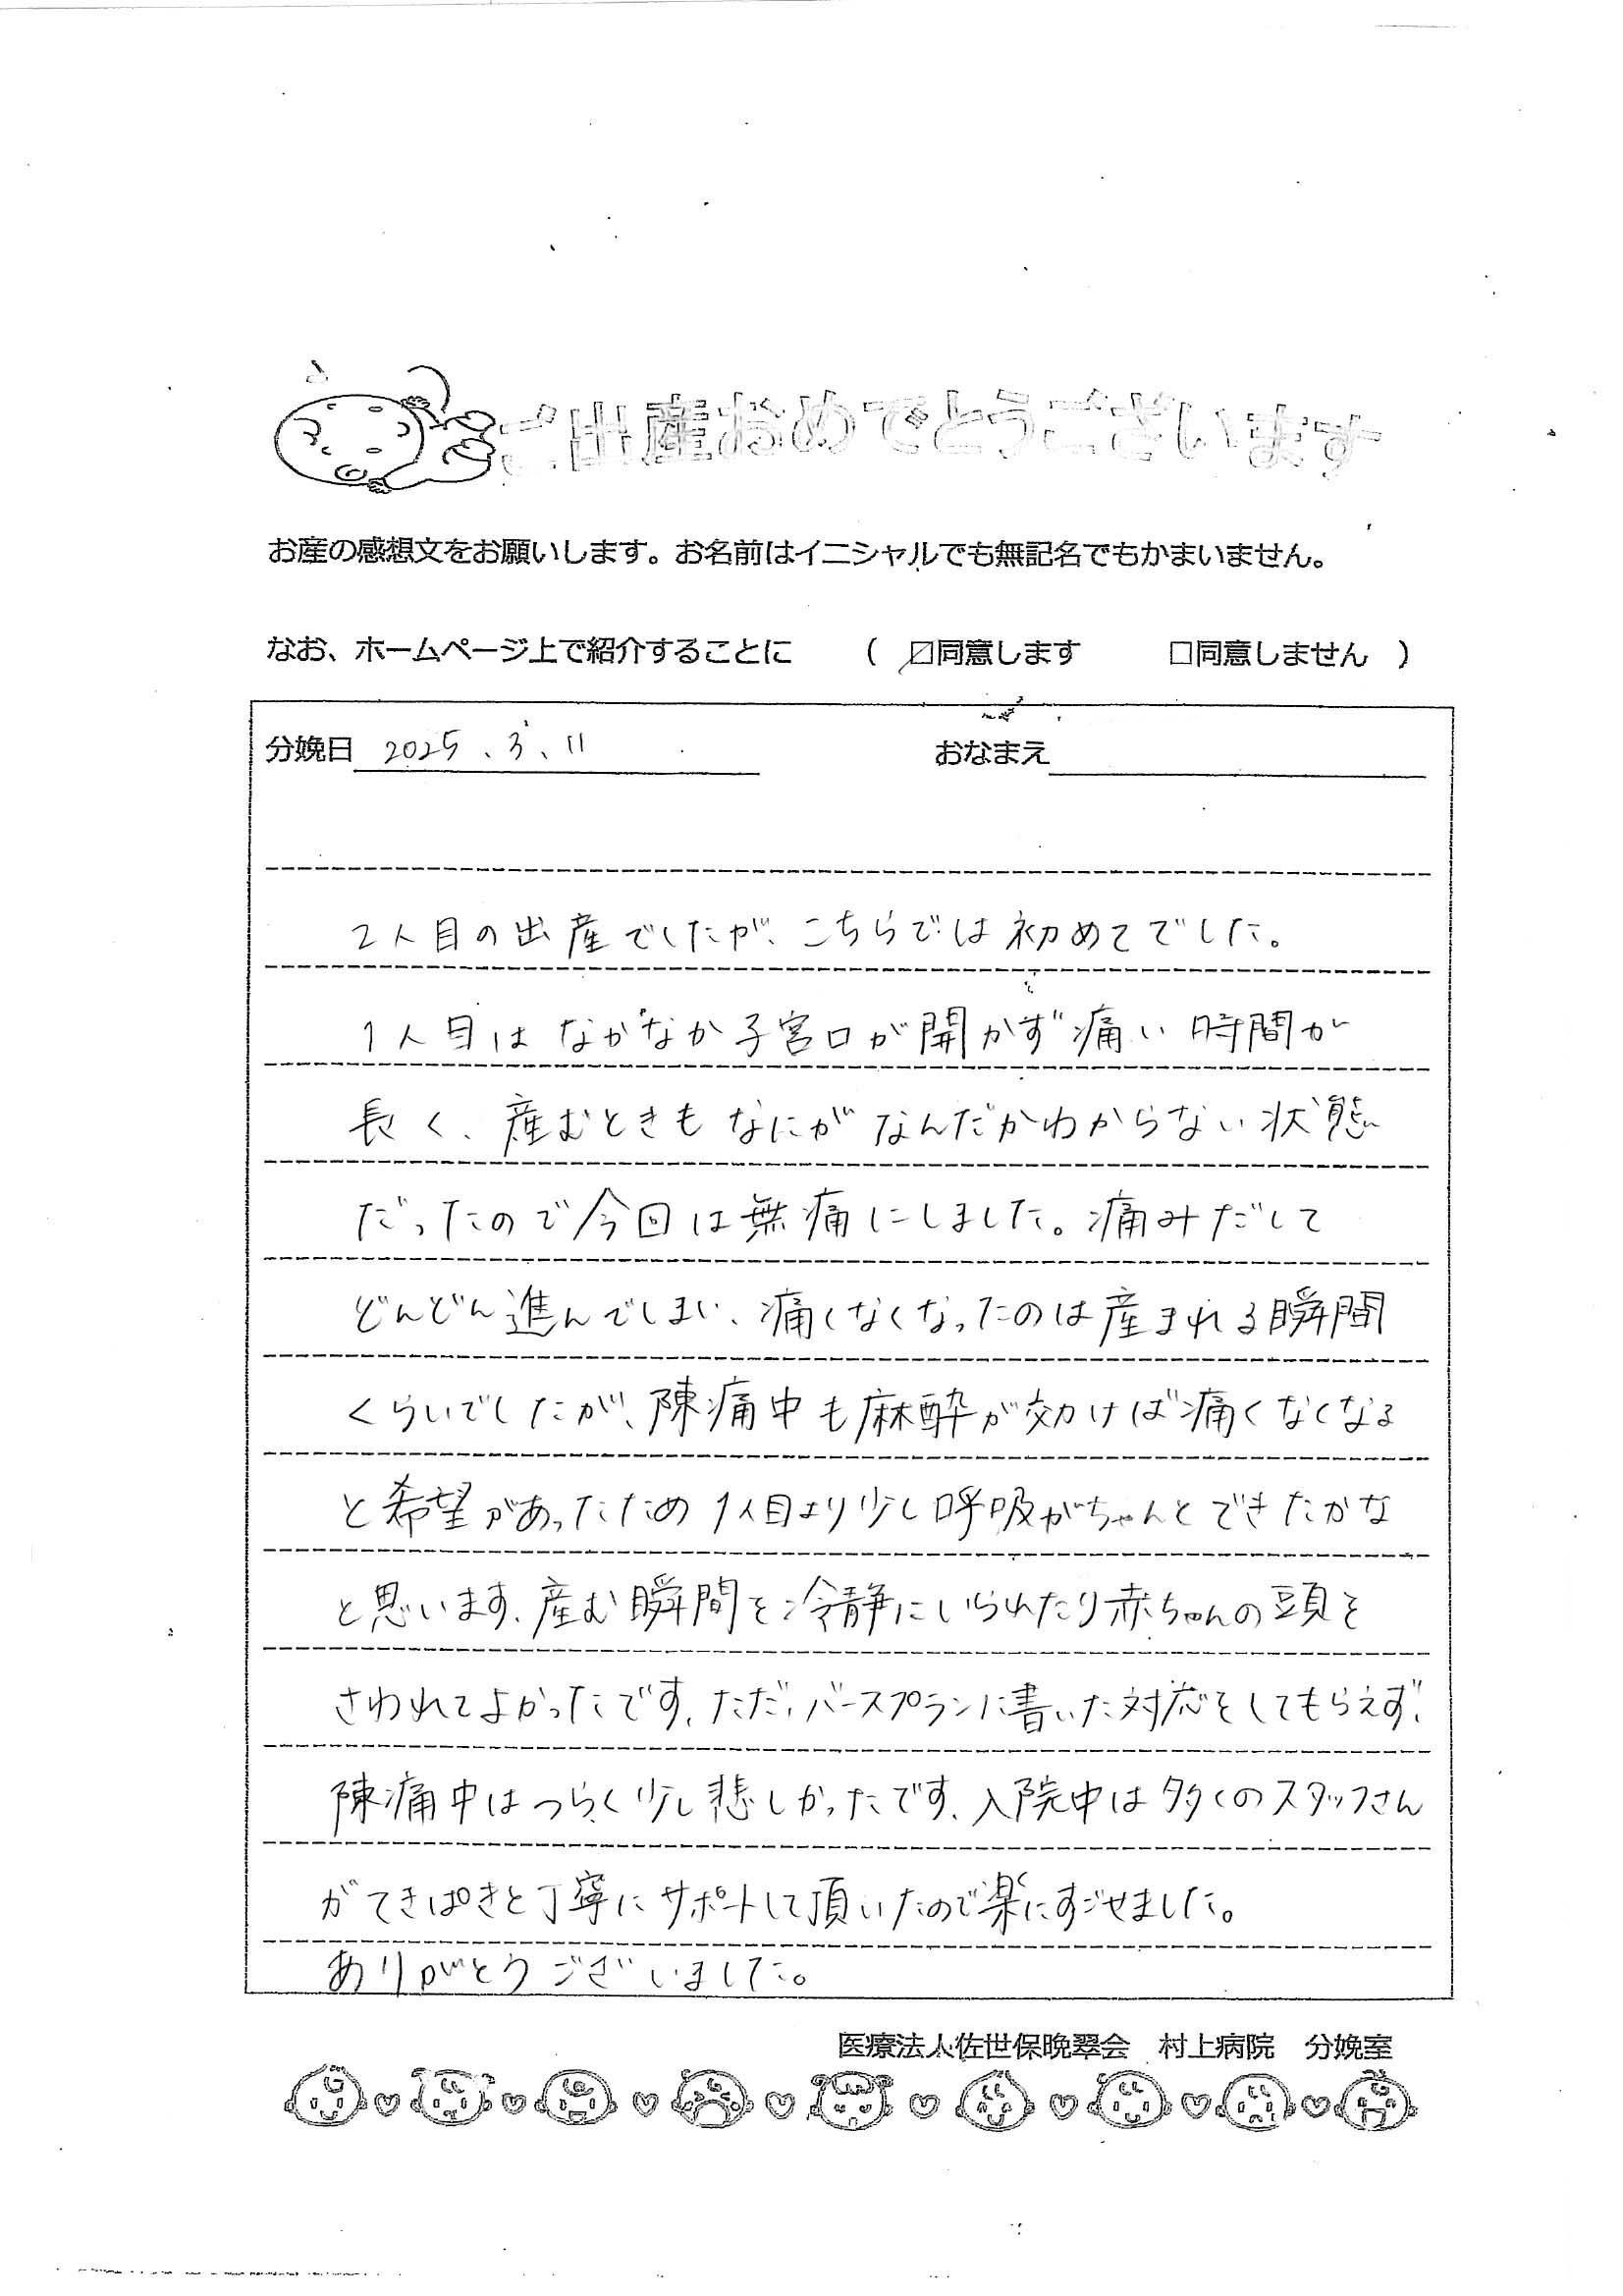 ご出産おめでとうございます
お産の感想文をお願いします。お名前はイニシャルでも無記名でもかまいません。
なお、ホームページ上で紹介することに （ ☑同意します □同意しません ）
分娩日 2025.3.11 おなまえ
2人目の出産でしたが、こちらでは初めてでした。
1人目はなかなか子宮口が開かず痛い時間が
長く、産むときもなにがなんだかわからない状態
だったので今回は無痛にしました。痛みだして
どんどん進んでしまい、痛くなくなったのは産まれる瞬間
くらいでしたが、陣痛中も麻酔が効けば痛くなくなる
と希望があったため1人目より少し呼吸がちゃんとできたかな
と思います、産む瞬間を冷静にいられたり赤ちゃんの頭を
さわれてよかったです、ただ、バースプランに書いた対応をしてもらえず、
陣痛中はつらく少し悲しかったです、入院中は多くのスタッフさん
がてきぱきと丁寧にサポートして頂いたので楽にすごせました。
ありがとうございました。
医療法人佐世保晩翠会 村上病院 分娩室